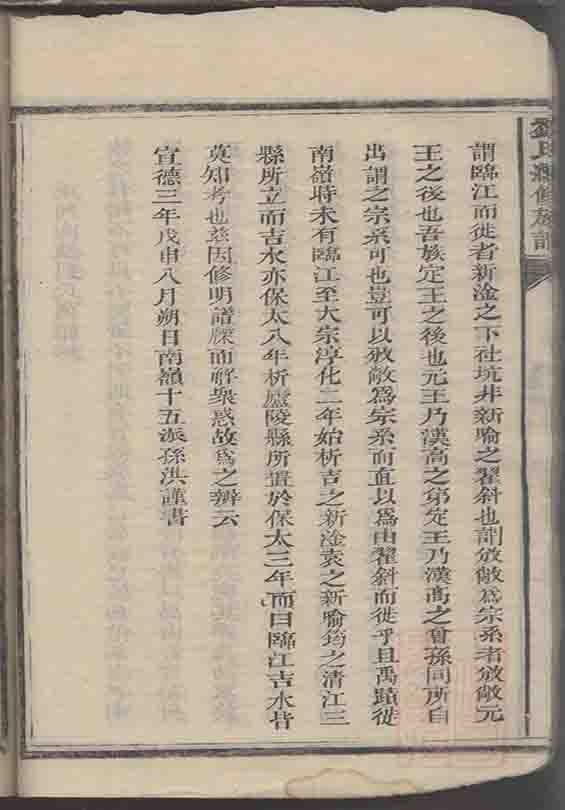 劉氏續修族譜
謂臨江而徙者新淦之下社坑非新喻之翟斜也謂攽敞為宗系者攽敞元
王之後也吾族定王之後也元王乃漢高之弟定王乃漢高之曾孫同所自
出謂之宗系可也豈可以攽敞為宗系而直以為由翟斜而徙乎且禹蹟徙
南嶺時未有臨江至大宗淳化二年始析吉之新淦袁之新喻筠之清江三
縣所立而吉水亦保太八年析廬陵縣所置於保太三年而曰臨江吉水昔
莫知考也茲因修明譜牒而解衆惑故為之辨云
宣德三年戊申八月朔日南嶺十五派孫洪謹書